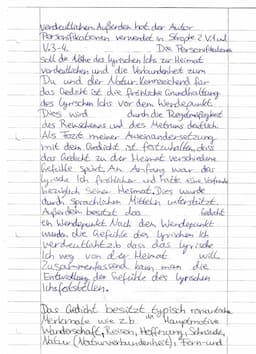 verdeutlichen. Außerdem hat der Autor
Personifikationen verwendet in Strophe 2 V.1 und
V.3-4. Die Personifikationen
soll die Nähe des lyrischen Ichs zur Heimat
verdeutlichen und die Verbundenheit zum
Du und der Natur. Kennzeichnend für
das Gedicht ist die fröhliche Grundhaltung
des Lyrischen Ichs vor dem Wendepunkt.
Dies wird durch die Regelmäßigkeit
des Reimschemas und des Metrums deutlich.
Als Fazit meiner Auseinandersetzung
mit dem Gedicht ist festzuhalten, dass
das Gedicht zu der Heimat verschiedene
Gefühle spürt. Am Anfang war das
lyrische Ich fröhlicher und hatte eine
bezüglich seiner Heimat. Dies wurde
durch sprachlichen Mitteln unterstützt.
Außerdem besitzt das Gedicht
ein Wendepunkt. Nach dem Wendepunkt
wurden die Gefühle des lyrischen Ich
verdeutlicht z.b dass das lyrische
Ich weg von der Heimat will
Zusammenfassend kann man die
Entwicklung der Gefühle des lyrischen
Ichs feststellen.
Das Gedicht besitzt typisch romantische
Merkmale wie z.b Hauptmotive
Wanderschaft, Reisen, Hoffnung, Sehnsucht,
Natur (Naturverbundenheit), Fern-und